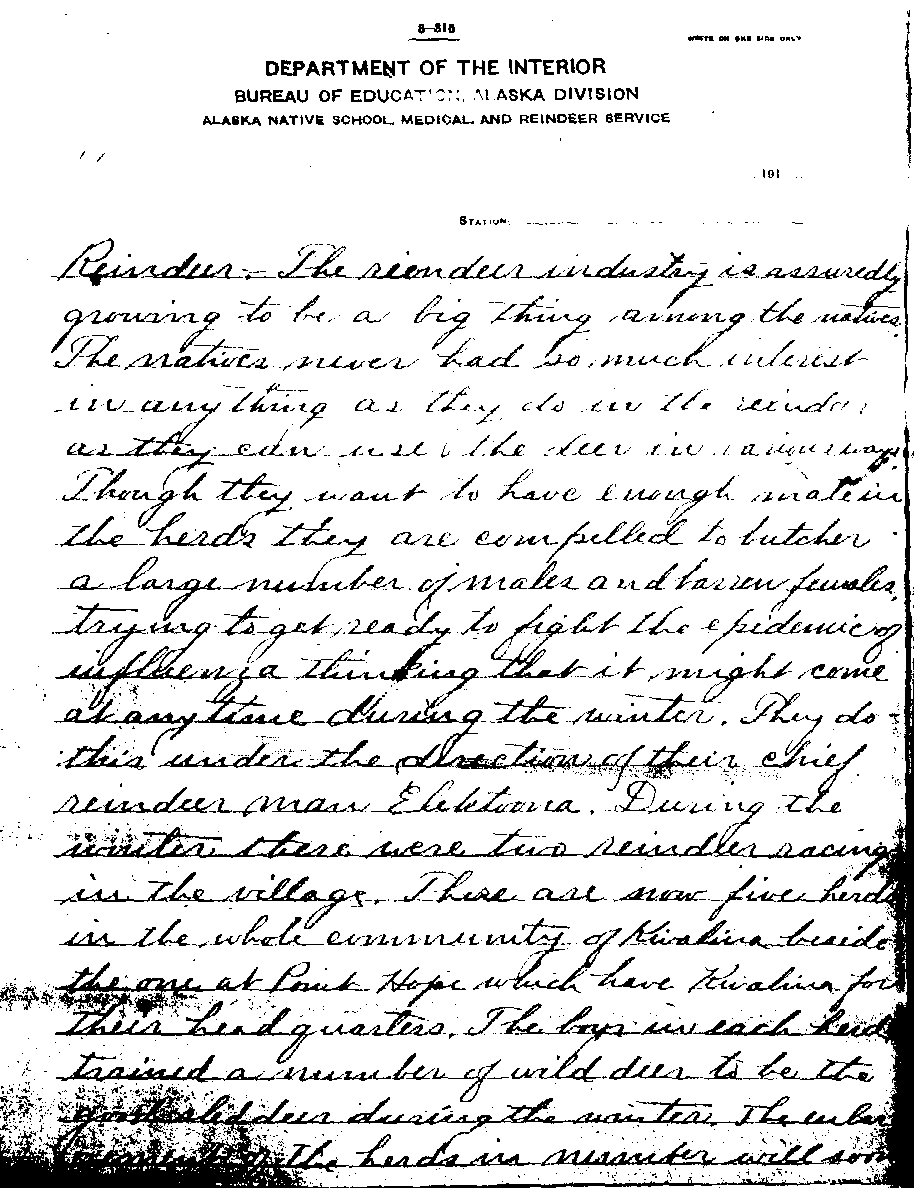 8-315
WRITE ON ONE SIDE ONLY
DEPARTMENT OF THE INTERIOR
BUREAU OF EDUCATION, ALASKA DIVISION
ALASKA NATIVE SCHOOL, MEDICAL, AND REINDEER SERVICE
191
STATION
Reindeer.- The riendeer industry is assuredly
growing to be a big thing among the natives.
The natives never had so much interest
in anything as they do in the reindeer
as they can use the deer in various ways.
Though they want to have enough male in
the herds they are compelled to butcher
a large number of males and barren females,
trying to get ready to fight the epidemic of
influenza thinking that it might come
at anytime during the winter. They do
this under the direction of their chief
reindeer man Elektoona. During the
winter there were two reindeer racing
in the village. There are now five herds
in the whole community of Kivalina beside
the one at Point Hope which have Kivalina for
their head quarters. The boys in each herd
trained a number of wild deer to be the
good sled deer during the winter. The
the herds in number will soon